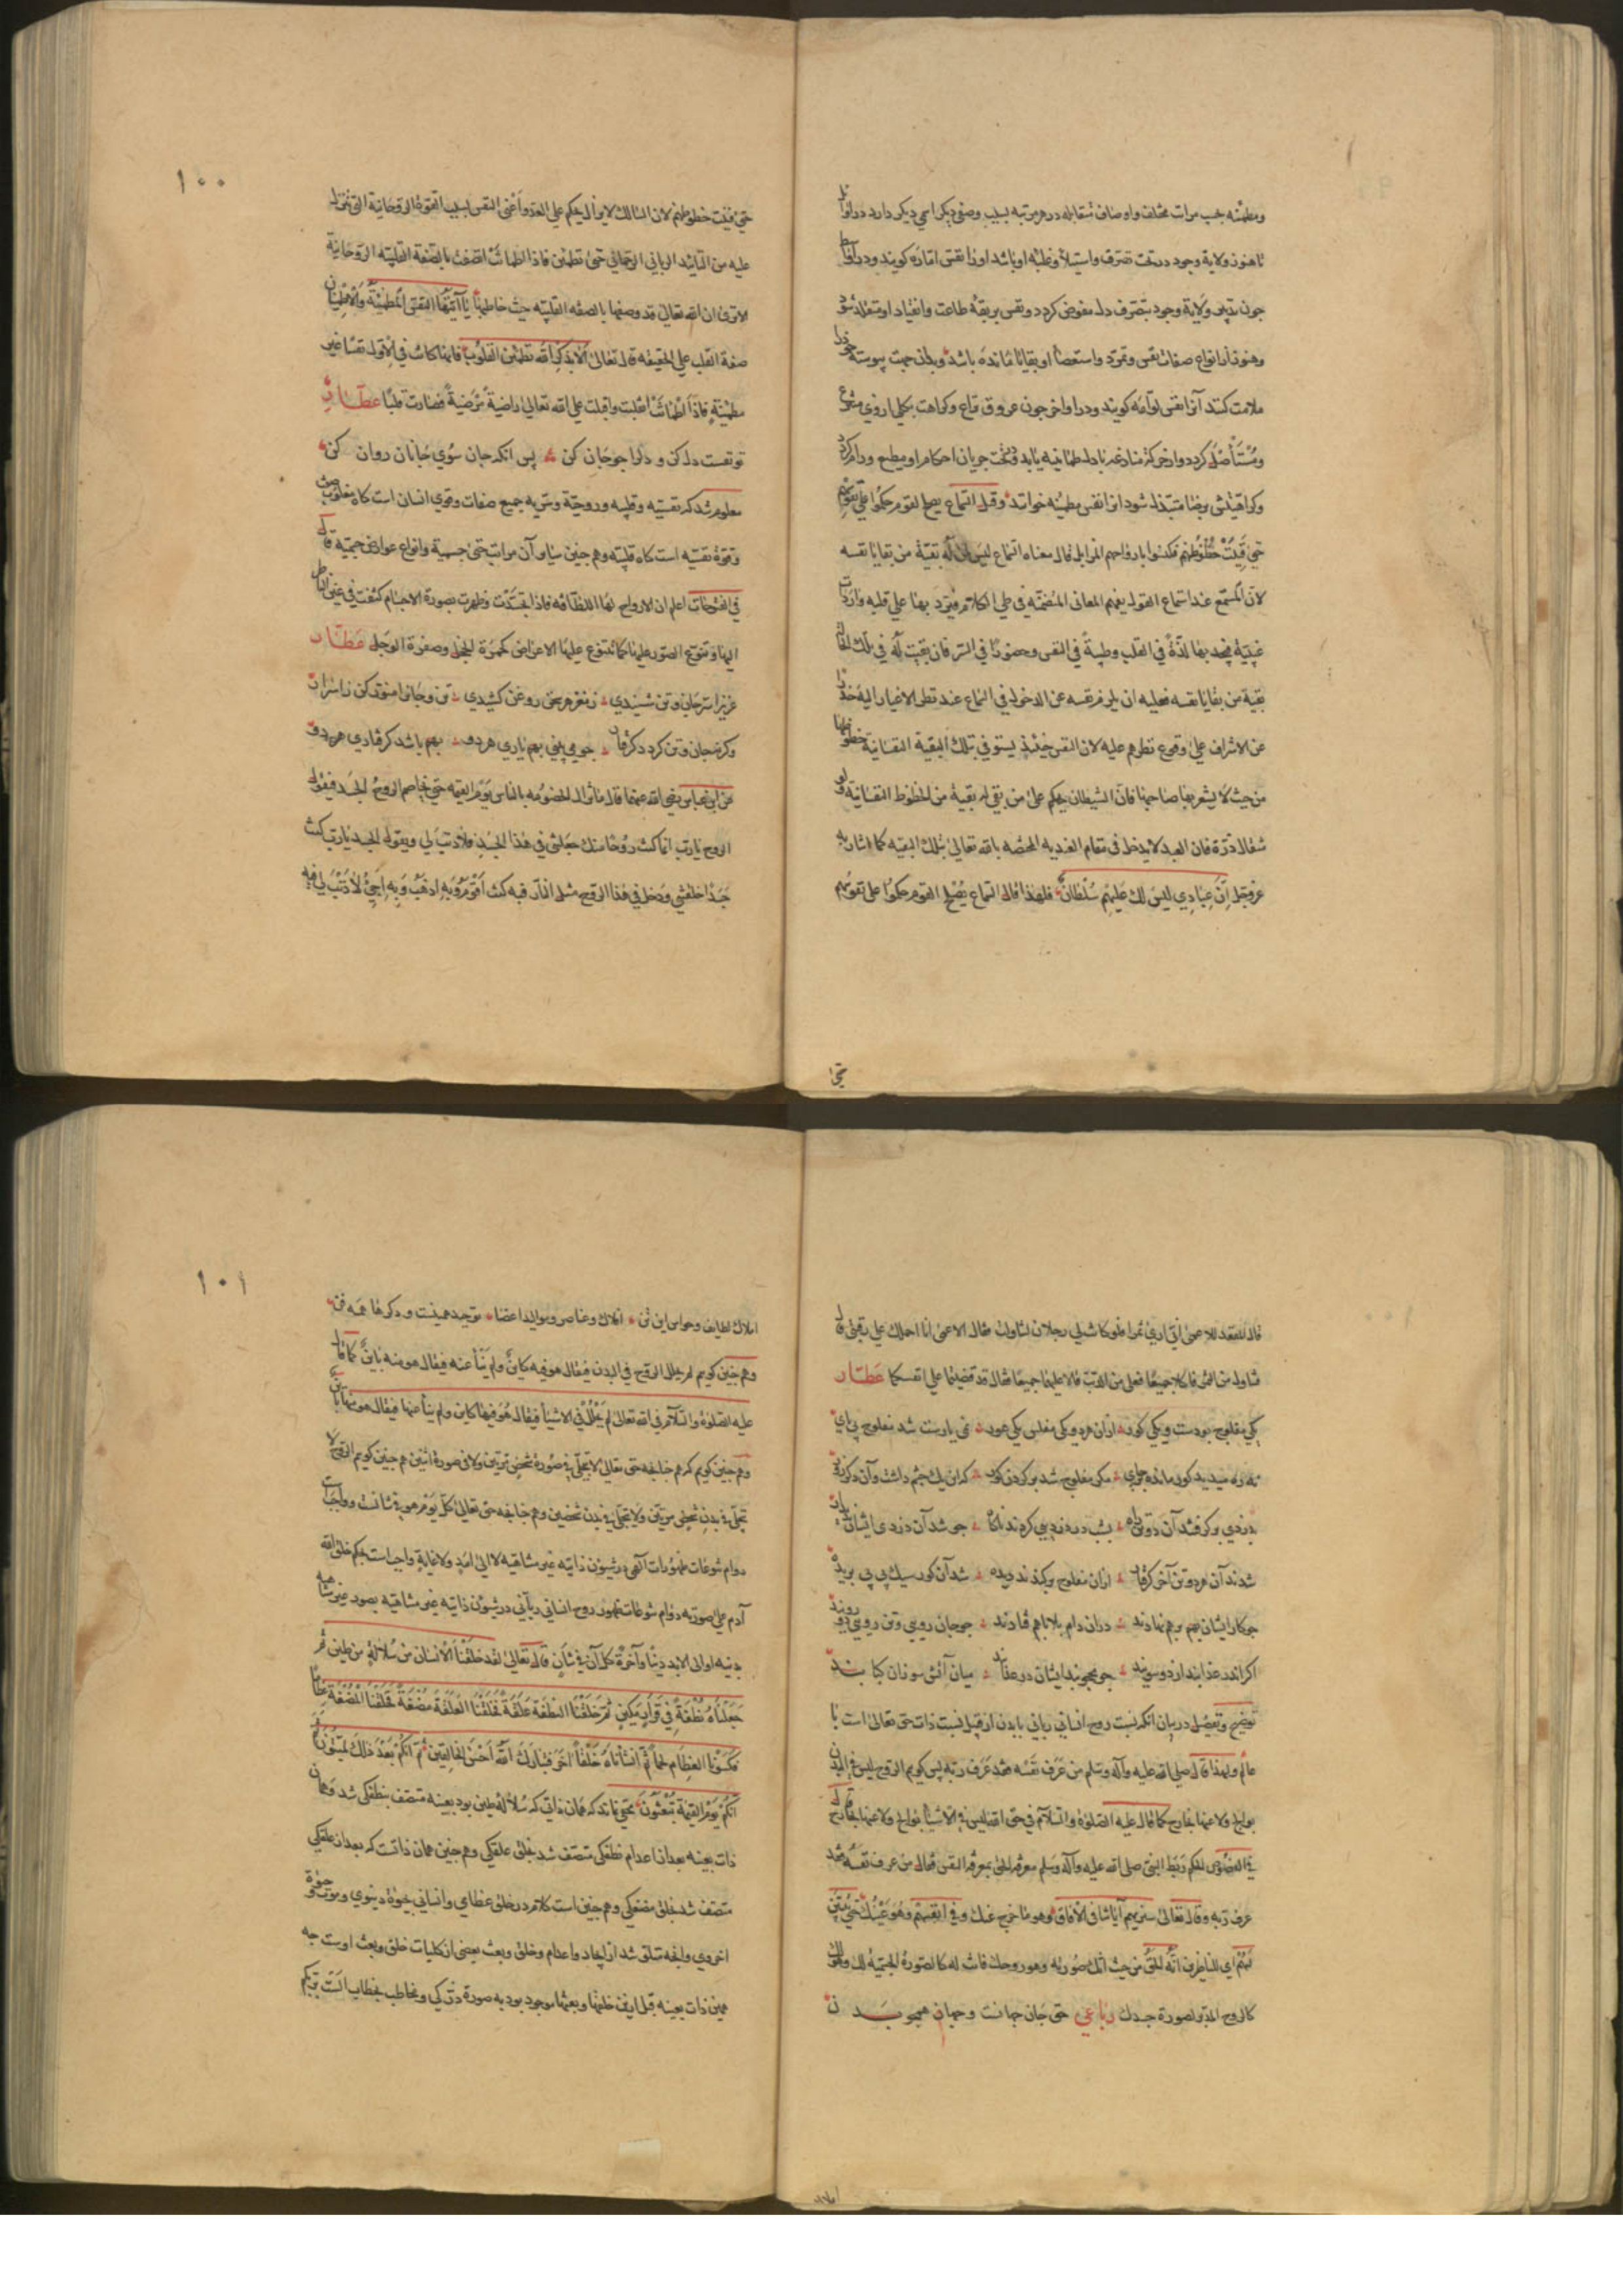 ومطمئنه بحسب مراتب مختلف واوصاف متقابله در هر مرتبه بسبب وصفی دیکر اسمی دیکر دارد در اوایل
تا هنوز ولایة وجود در تحت تصرف واستیلا وغلبه او باشد اورا نفس اماره کویند ودر اواسط
چون تدبیر ولایة وجود بتصرف دل مفوض کردد ونفس بربقهٔ طاعت وانقیاد او متقلد شود
وهنوز از انواع صفات نفس وتمرد واستعصا او بقایا مانده باشد وبدان جهت پیوسته خود را
ملامت کند آنرا نفس لوامه کویند ودر اواخر چون عروق نزاع وکراهت بکلی ازوی منتزع
ومستأصل کردد واز حرکة منازعه با دل طمانینه یابد وتحت جریان احکام او مطیع ورام کردد
وکراهیتش برضا متبدل شود انرا نفس مطمئنه خوانند وقیل السماع یصلح لقوم حکموا علی نفوسهم
حتی فنیت حظوظهم فکنسوا بارواحهم المزابل قال معناه السماع لیس لمن له بقیة من بقایا نفسه
لان المستمع عند استماع القول یفهم المعانی المتضمنه فی طی الکلام فیرد بها علی قلبه واردات
غیبیة فیجد بها لذة فی القلب وطیبة فی النفس وحضورا فی السر فان بقیت له فی تلک الحال
بقیة من بقایا نفسه فعلیه ان یلزم نفسه عن الدخول فی السماع عند نظر الاغیار الیه حذرا
عن الاشراف علی وقوع نظرهم علیه لان النفس حینئذ یستوفی بتلک البقیة النفسانیة حظوظها
من حیث لا یشعر بها صاحبها فان الشیطان یحکم علی من بقی له بقیة من الحظوظ النفسانیة ولو
مثقال ذرة فان العبد لا یدخل فی مقام العبدیه المحضه بالله تعالی بتلک البقیه کما اشار به
عز وجل اِنَّ عِبَادِی لَیْسَ لَکَ عَلَیْهِمْ سُلْطَانٌ فلهذا قال السماع یصلح لقوم حکموا علی نفوسهم
حتی
۱۰۰
حتی فنیت حظوظهم لان السالک لا یزال یحکم علی العدو اعنی النفس بسبب القوة الروحانیة التی تنزل
علیه من التائید الربانی الرحمانی حتی تطمئن فاذا اطمانت اتصفت بالصفة القلبیة الروحانیة
الا تری ان الله تعالی قد وصفها بالصفه القلبیه حیث خاطبها یَا اَیَّتُهَا النفس المُطْمَئِنَّةُ وَالْاِطْمِینَان
صفة القلب علی الحقیقه قال تعالی اَلَا بِذِکْرِ اللهِ تَطْمَئِنُّ القُلُوبُ فانها کانت فی الاول نفسا غیر
مطمئنة فاذا اطمانت انقلبت واقبلت علی الله تعالی راضیة مرضیة فصارت قلبا عطّار
تو نفست دل کن و دلرا چو جان کن پس انکه جان سوی جانان روان کن
معلوم شد که نفسیه وقلبیه وروحیة وسریه جمیع صفات وقوی انسان است کاه مغلوب
وقوة نفسیه است کاه قلبیه وهم چنین سایر آن مراتب حتی جسمیة وانواع عوارض جسمیه قال
فی الفتوحات اعلم ان الارواح لها اللطافه فاذا تجسدت وظهرت بصورة الاجسام کثفت فی عین الناظر
الیها وتتنوع الصور علیها کما تتنوع علیها الاعراض کحمرة الخجل وصفرة الوجل عَطّار
عزیزا سر جان وتن شنیدی ز مغز هر سخن روغن کشیدی تن وجانرا منور کن ز اسرار
وکرنه جان وتن کردد کرفتار چو می بینی بهم یاری هر دو بهم باشد کرفتاری هر دو
عن ابن عباس رضی الله عنهما قال ما تزال الخصومه بالناس یوم القیمه حتی یخاصم الروح الجسد فیقول
الروح یا رب انما کنت روحا منک جعلتنی فی هذا الجسد فلا ذنب لی ویقول الجسد یا رب کنت
جسدا خلقتنی ودخل فی هذا الروح مثل النار فبه کنت اقوم وبه اذهب وبه اجیئ لا ذنب لی فیه
قال للمقعد للاعمی انی اری ثمرا فلو کانت لی رجلان لتناولت فقال الاعمی انا احملک علی رقبتی قال
فتناول من الثمر فاکلا جمیعا فعلی من الذنب قالا علیهما جمیعا فقال قد قضیتما علی انفسکما عَطّار
یکی مفلوج بودست ویکی کور ازان هر دو یکی مفلس یکی عور نمی یارست شد مفلوج بی پای
نه ره میدید کور مانده بر جای مکر مفلوج شد بر کردن کور که این یک چشم داشت وآن دکر زور
بدزدی بر کرفتند آن دو تن راه بشب در دزدیی کردند ناکاه چو شد آن دزدی ایشان پدیدار
شدند آن هر دو تن آخر کرفتار ازان مفلوج برکندند دیده شد آن کور سبک پی پی بریده
چو کار ایشان بهم بر هم نهادند دران دام بلا باهم فتادند چو جان رویی وتن رویی دو روید
اکر اندر عذاب انداز دو سویید چو محجوبند ایشان در عقاب میان آتش سوزان کباب
توضیح وتفصیل در بیان انکه نسبت روح انسانی ربانی با بدن از قبیل نسبت ذات حق تعالی است با
عالم ولهذا قال صلی الله علیه وآله وسلم من عرف نفسه فقد عرف ربه پس کویم الروح لیس فی البدن
بوالج ولا عنها بخارج کما قال علیه الصلوة والسلام فی حق الله لیس فی الاشیاء بوالج ولا عنها بخارج قال
فی الفصوص الحکم ربط النبی صلی الله علیه وآله وسلم معرفة الحق بمعرفة النفس فقال من عرف نفسه فقد
عرف ربه وقال تعالی سنریهم آیاتنا فی الآفاق وهو ما خرج عنک وفی انفسهم وهو عینک حتی یتبین
لهم ای للناظرین انه الحق من حیث انک صورته وهو روحک فانت له کالصورة الجسمیة لک وهو لک
کالروح المدبر لصورة جسدک رباعی حق جان جهانست وجهان همچو بدن
املاک
۱۰۱
املاک لطایف وحواس این تن افلاک وعناصر وموالید اعضا توحید همینست ودکرها همه فن
وهم چنین کویم لم یحلل الروح فی البدن فیقال هو فیه کاین ولم ینأ عنه فیقال هو منه باین کما قال
علیه الصلوة والسلام فی الله تعالی لم یحلل فی الاشیاء فیقال هو فیها کاین ولم ینأ عنها فیقال هو منها باین
وهم چنین کویم که هم چنانچه حق تعالی لا یتجلی فی صورة شخص مرتین ولا فی صورة اثنین هم چنین کویم الروح لا
تجلی فی بدن شخص مرتین ولا تجلی فی بدن شخصین وهم چنانچه حق تعالی کل یوم هو فی شانست وواجبات
دوام تنوعات ظهورات الهی در شیون ذاتیه غیر متناهیه لا الی امد ولا غایة واجبست بحکم خلق الله
آدم علی صورته دوام تنوعات ظهور روح انسانی ربانی در شیون ذاتیه غیر متناهیه بصور غیر متناهیه
بدنیه اولی الابد دنیا وآخرة کل آن فی شان قال تعالی لقد خلقنا الانسان من سلالة من طین ثم
جَعَلْنَاهُ نُطْفَةً فِی قَرَارٍ مَکِینٍ ثُمَّ خَلَقْنَا النُّطْفَةَ عَلَقَةً فَخَلَقْنَا الْعَلَقَةَ مُضْغَةً فَخَلَقْنَا الْمُضْغَةَ عِظَامًا
فَکَسَوْنَا الْعِظَامَ لَحْمًا ثُمَّ اَنْشَأْنَاهُ خَلْقًا آخَرَ فَتَبَارَکَ اللهُ اَحْسَنُ الْخَالِقِینَ ثُمَّ اِنَّکُمْ بَعْدَ ذٰلِکَ لَمَیِّتُونَ ثم
اِنَّکُمْ یَوْمَ الْقِیٰمَةِ تُبْعَثُونَ مخفی نماند که همان ذاتی که سلالهٔ طین بود بعینه متصف بنطفکی شد وهمان
ذات بعینه بعد از اعدام نطفکی متصف شد بخلق علقکی وهم چنین همان ذاتست که بعد از علقکی
متصف شد بخلق مضغکی وهم چنین است کلام در خلق عظامی وانسانی حیوة دنیوی وموت وحیوة
اخروی وانچه متعلق شد از ایجاد واعدام وخلق وبعث یعنی از کلیات خلق وبعث اوست چه
همین ذات بعینه قبل از این خلقها وبعثها موجود بود به صورة ذرکی ومخاطب بخطاب الست بربکم